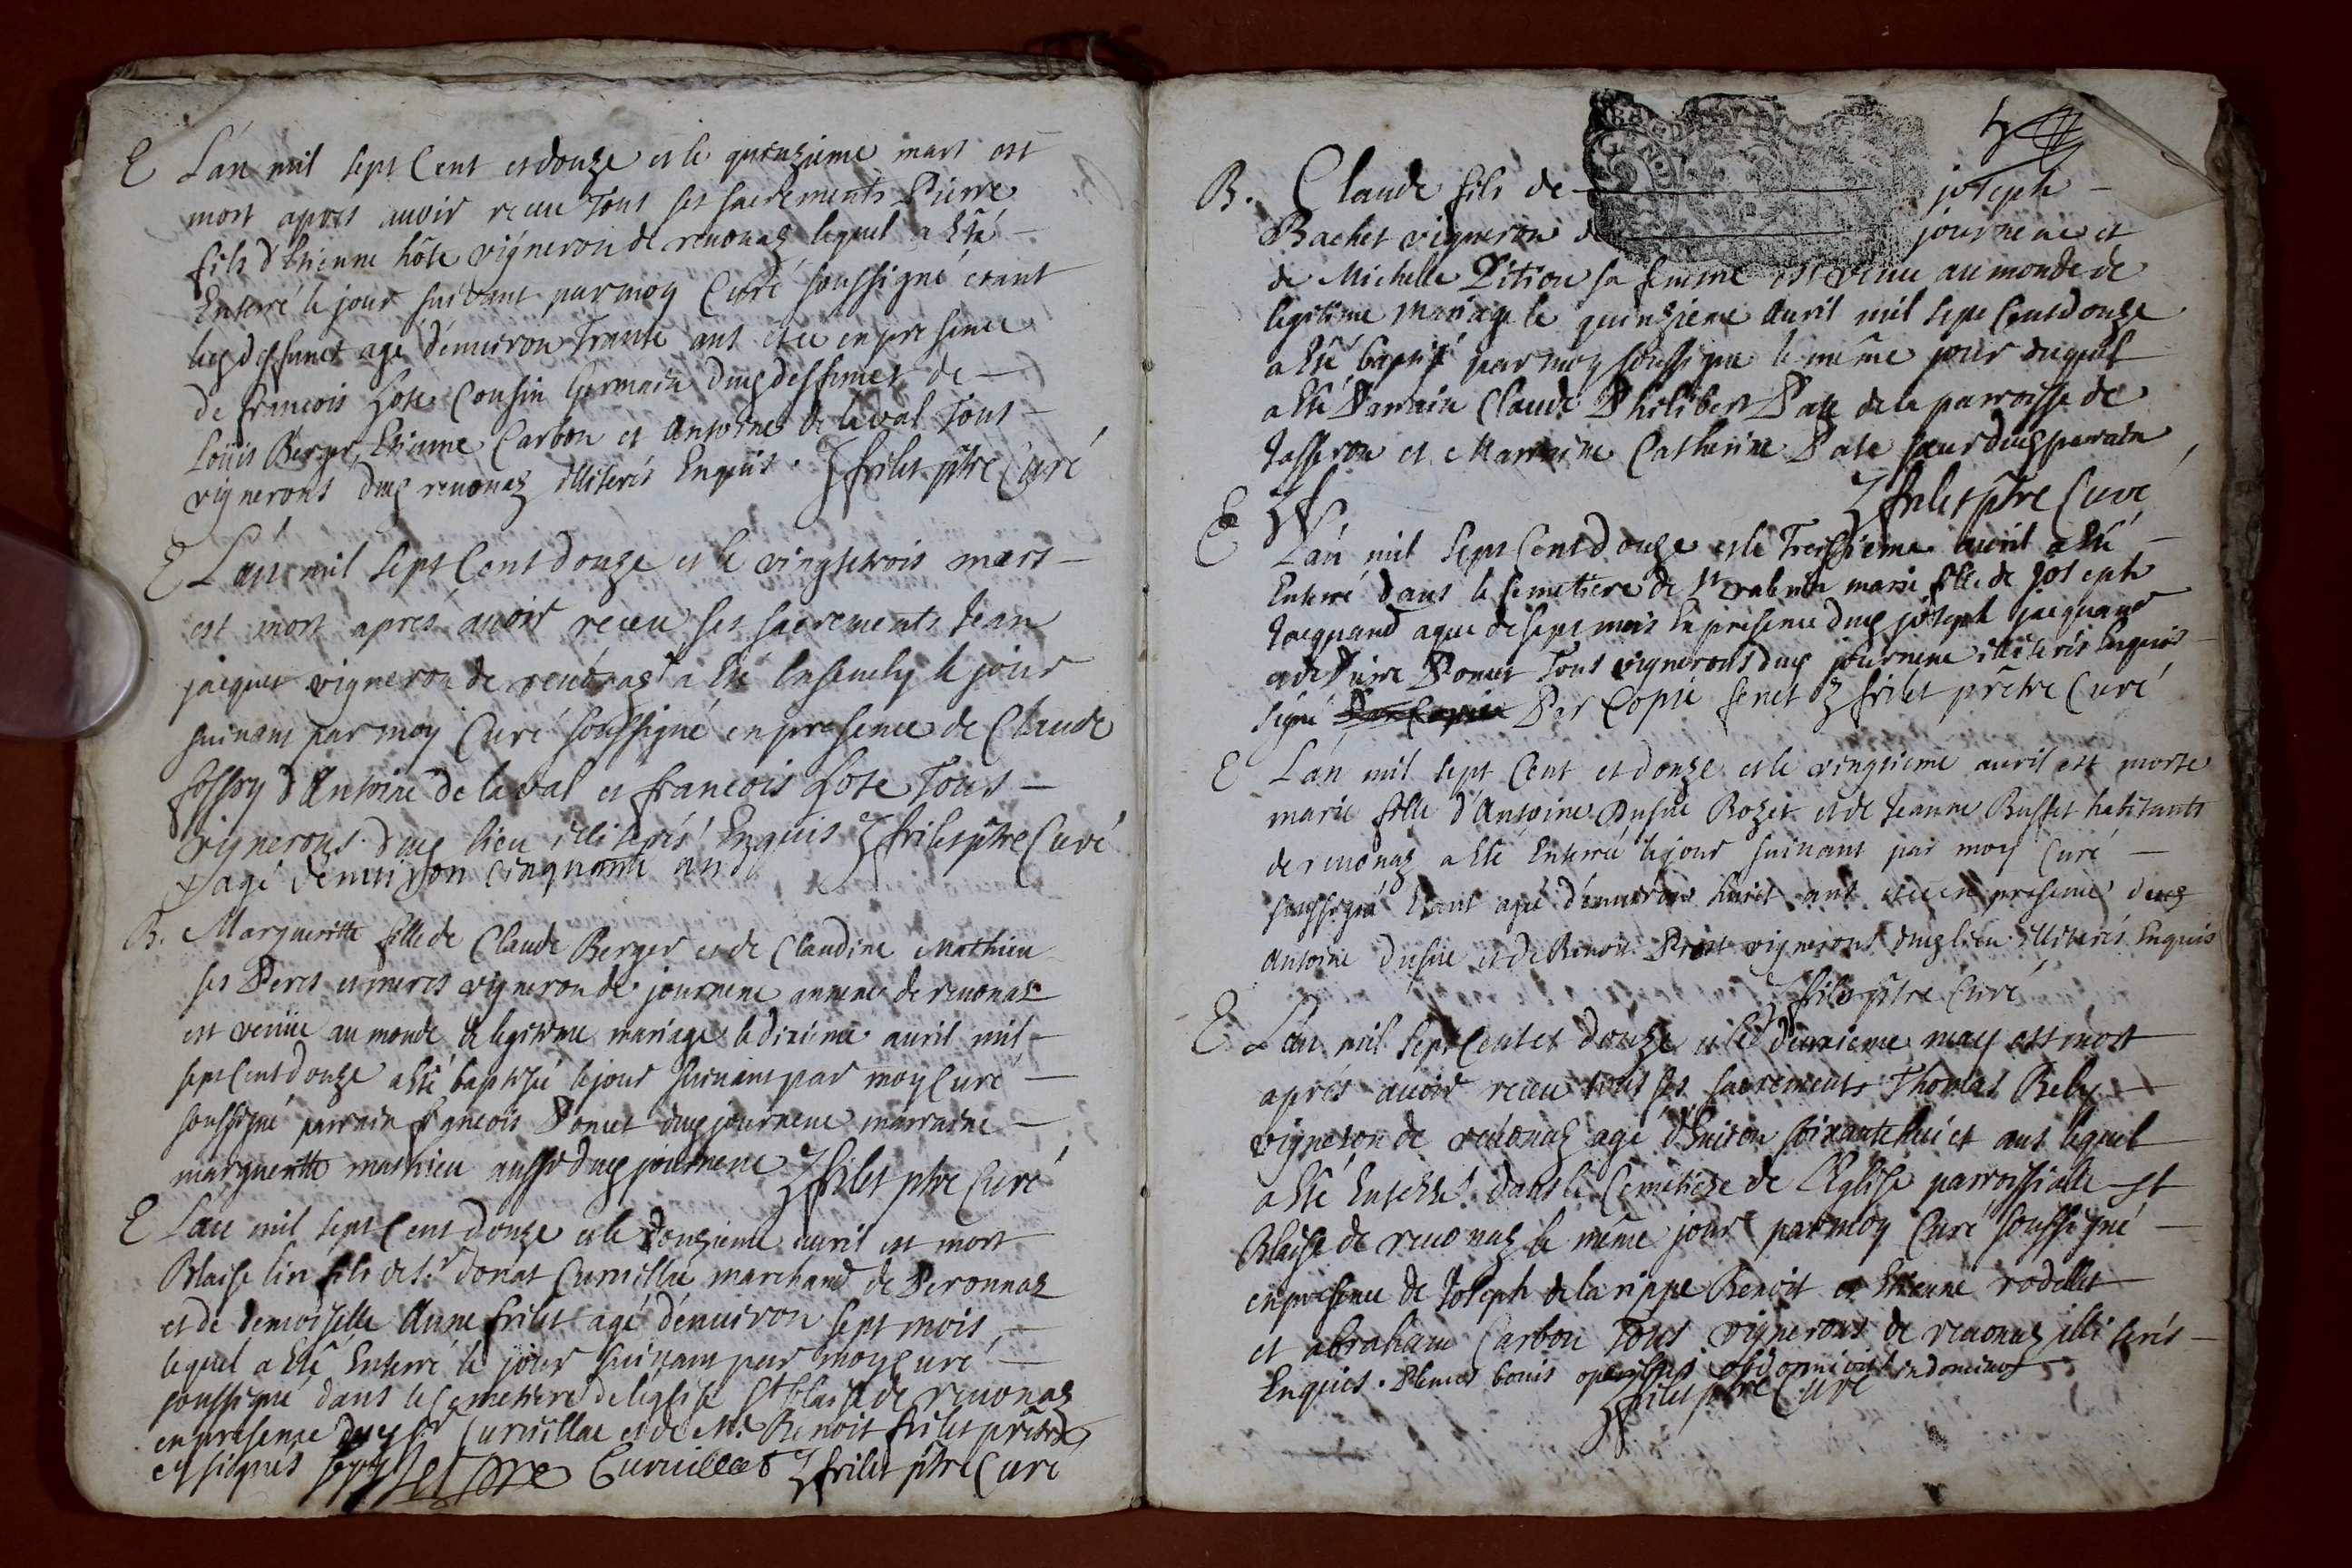 E L'an mil sept Cent et douze et le quinzieme mars est
mort apres auoir receu tous ses sacrements Pierre
fils d'Etienne hôte vigneron de reuonaz lequel a Eté
Enterré le jour suivant par moy Curé soussigné étant
led deffunct agé d'enuiron Trante ans et ce en presence
de francois hote Cousin Germain dud deffunct de
Loüis Berger, Etienne Carbon et Antoine de laval Tous
vignerons dud reuonaz illiterés Enquis. frilet ptre Curé
E L'an mil sept Cent Douze et le vingt trois mars
est mort apres auoir receu ses sacrements Jean
jacquet vigneron de reuonaz a Eté Enseuely le jour
suiuant par moy Curé soussigné en presence de Claude
d'Antoine de la val et francois hote Tous
vignerons dud lieu illiterés Enquis frilet ptre Curé
agé d'enuiron Cinquante ans
B. Margueritte fille de Claude Berger et de Claudine Mathieu
ses Peres et meres vigneron de journene annexe de reuonas
est venüe au monde de legitime mariage le dixieme auril mil
sept Cent douze a Eté baptisée le jour suiuant par moy Curé
soussigné parrain francois Ponnet dud journene marraine
margueritte mathieu aussi dud journene frilet ptre Curé
E L'an mil sept Cent douze et le Douzieme auril est mort
Blaise fils de Sr donat Curuillac marchand de Peronnas
et de demoiselle Anne frilet agé d'enuiron sept mois
lequel a Eté Enterré le jour suiuant par moy Curé
soussigné dans le Cemetiere de leglise St blaise de reuonas
en presence dud Sr Curuillac et de Mre Benoit frilet prêtre
et signés Curuillat frilet ptre Curé
B. Claude fils de joseph
Bachet vigneron d journene et
de Michelle Pition sa femme est venu au monde de
legitime mariage le quinzieme Auril mil sept Cent douze
a Eté baptisé par moy soussigné le même jour duquel
a Eté Parrain Claude Philibert Pate de la parroisse de
Jasseron et Marraine Catherine Pate soeur dud parrain
frilet ptre Curé
E L'an mil sept Cent Douze et le Treizieme auril a Eté
Enterré dans le Cemetiere de St valentin marie fille de Joseph
Jacquand agee de sept mois En presence dud joseph jacquand
et de Pierre Ponnet Tous vignerons dud journene illiterés Enquis
signé Par Copie Par Copie frilet prêtre Curé
E L'an mil sept Cent et douze et le vingtieme auril est morte
marie fille d'Antoine Dufue Rozet et de Jeanne Buffet habitants
de reuonaz a Eté Enterrée le jour suiuant par moy Curé
soussigné Etant agée d'enuiron huict ans et ce en presence dud
Antoine dufue et de Benoit vignerons dud lieu illiterés Enquis
frilet ptre Curé
E L'an mil sept Cent et Douze et le deuxieme may est mort
aprés auoir receu tous ses sacrements Thomas Reby
vigneron de reuonaz agé d'Enuiron soixante huict ans lequel
a Eté Enterré dans le Cemetiere de l'Eglise parroissialle St
Blaise de reuonaz le même jour par moy Curé soussigné
en presence de Joseph de la rippe Benoit et Etienne rodillet
et abraham Carbon Tous vignerons de reuonaz illiterés
Enquis. Plenus bonis operibus obdormiuit in domino
frilet ptre Curé